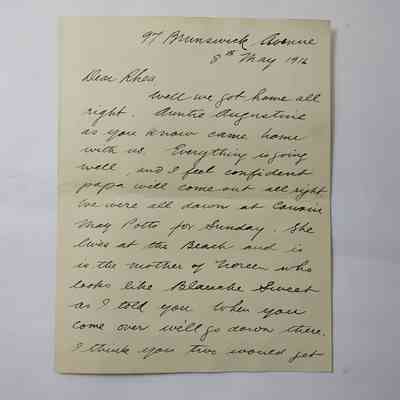 97 Brunswick Avenue
8th May 1916
Dear Rhea
Well we got home all
right. Auntie Augustine
as you know came home
with us. Everything is going
well, and I feel confident
papa will come out all right
We were all down at Cousin
May Potts for Sunday. She
lives at the Beach and is
is the mother of Noreen who
looks like Blanche Sweet
as I told you When you
come over we'll go down there.
I think you two would get